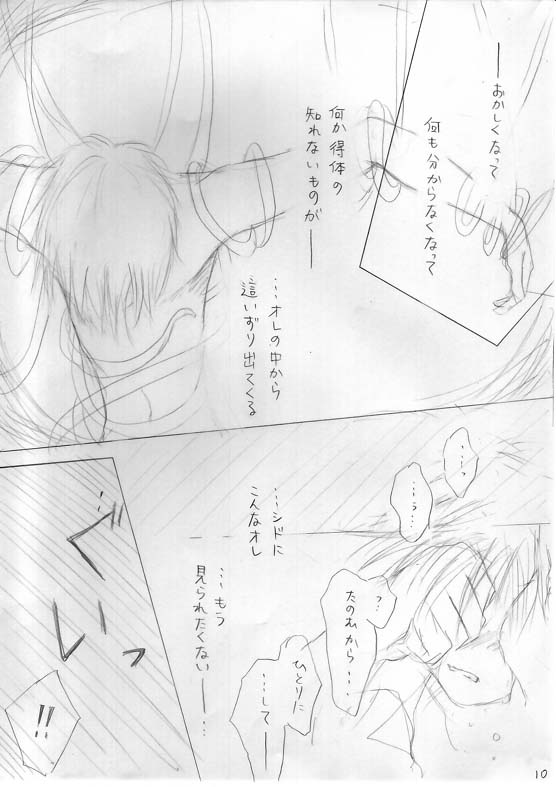 ――おかしくなって
何も分からなくなって
何か得体の
知れないものが――
…オレの中から
這いずり出てくる
…っ
…う…
…シドに
こんなオレ
…もう
見られたくない――…
っ…
たのむから…
ひとりに
…して――
ぐ
いっ
!!
10